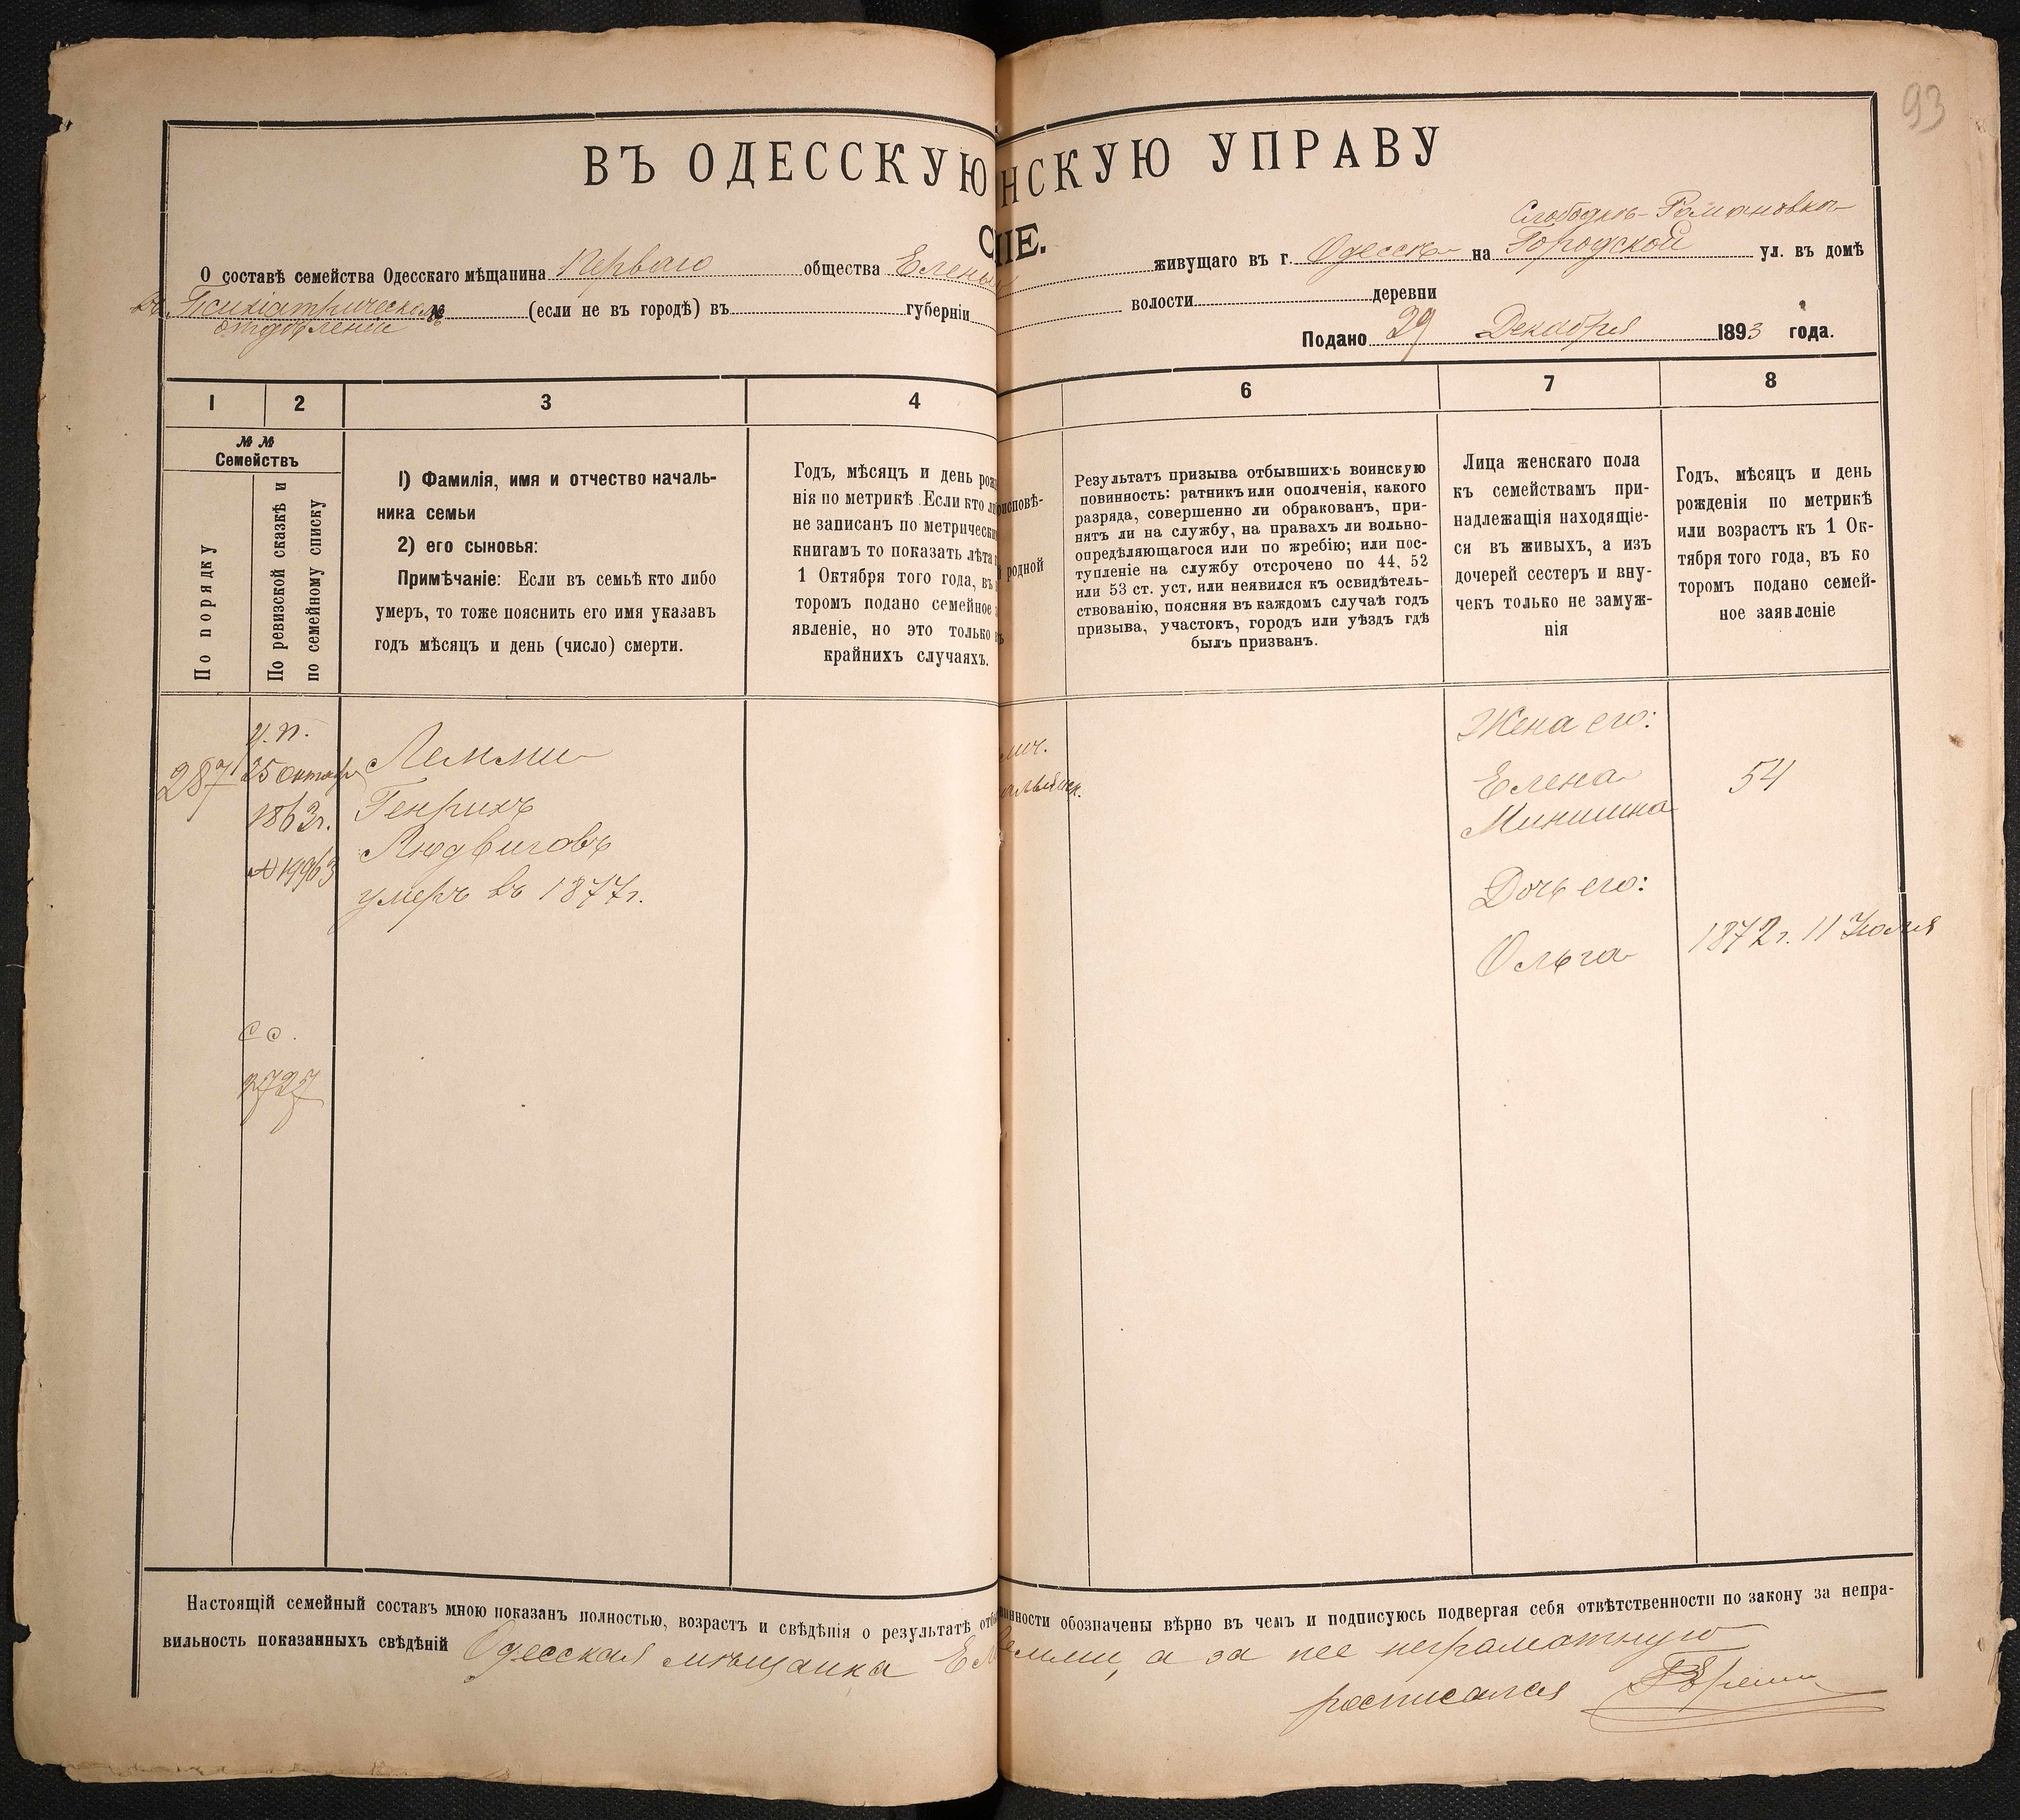 93
ВЪ ОДЕССКУЮ
НСКУЮ УПРАВУ
С
ІЕ.
О составѣ семейства Одесскаго мѣщанина Перваго общества Елены
Слободка-Романовка
живущаго въ г. Одессѣ на Городской ул. въ домѣ
въ Психіатрическомъ № (если не въ городѣ) въ губерніи
отдѣленіи
волости деревни
Подано 29 Декабря 1893 года.
1 2 3 4
6 7 8
№ №
Семействъ
По порядку
По ревизской сказкѣ и
по семейному списку
1) Фамилія, имя и отчество началь-
ника семьи
2) его сыновья:
Примѣчаніе: Если въ семьѣ кто либо
умеръ, то тоже пояснить его имя указавъ
годъ мѣсяцъ и день (число) смерти.
Годъ, мѣсяцъ и день рож
нія по метрикѣ. Если кто ли
не записанъ по метрически
книгамъ то показать лѣта
1 Октября того года, въ
торомъ подано семейное
явленіе, но это только
крайнихъ случаяхъ.
исповѣ-
родной
Результатъ призыва отбывшихъ воинскую
повинность: ратникъ или ополченія, какого
разряда, совершенно ли обракованъ, при-
нятъ ли на службу, на правахъ ли вольно-
опредѣляющагося или по жребію; или пос-
тупленіе на службу отсрочено по 44, 52
или 53 ст. уст. или неявился къ освидѣтель-
ствованію, поясняя въ каждомъ случаѣ годъ
призыва, участокъ, городъ или уѣздъ гдѣ
былъ призванъ.
Лица женскаго пола
къ семействамъ при-
надлежащія находящіе-
ся въ живыхъ, а изъ
дочерей сестеръ и вну-
чекъ только не замуж-
нія
Годъ, мѣсяцъ и день
рожденія по метрикѣ
или возрастъ къ 1 Ок-
тября того года, въ ко
торомъ подано семей-
ное заявленіе
287
у. п.
25 октяб
1863 г.
№ 19963
с с.
2727
Лемми
Генрихъ
Людвиговъ
умеръ въ 1877 г.
Жена его:
Елена
Минишна
54
Дочь его:
Ольга
1872 г. 11 Іюля
Настоящій семейный составъ мною показанъ полностью, возрастъ и свѣдѣнія о результатѣ отб
инности обозначены вѣрно въ чемъ и подписуюсь подвергая себя отвѣтственности по закону за непра-
вильность показанныхъ свѣдѣній Одесская мѣщанка Ел
емми, а за нее неграмотную
росписался